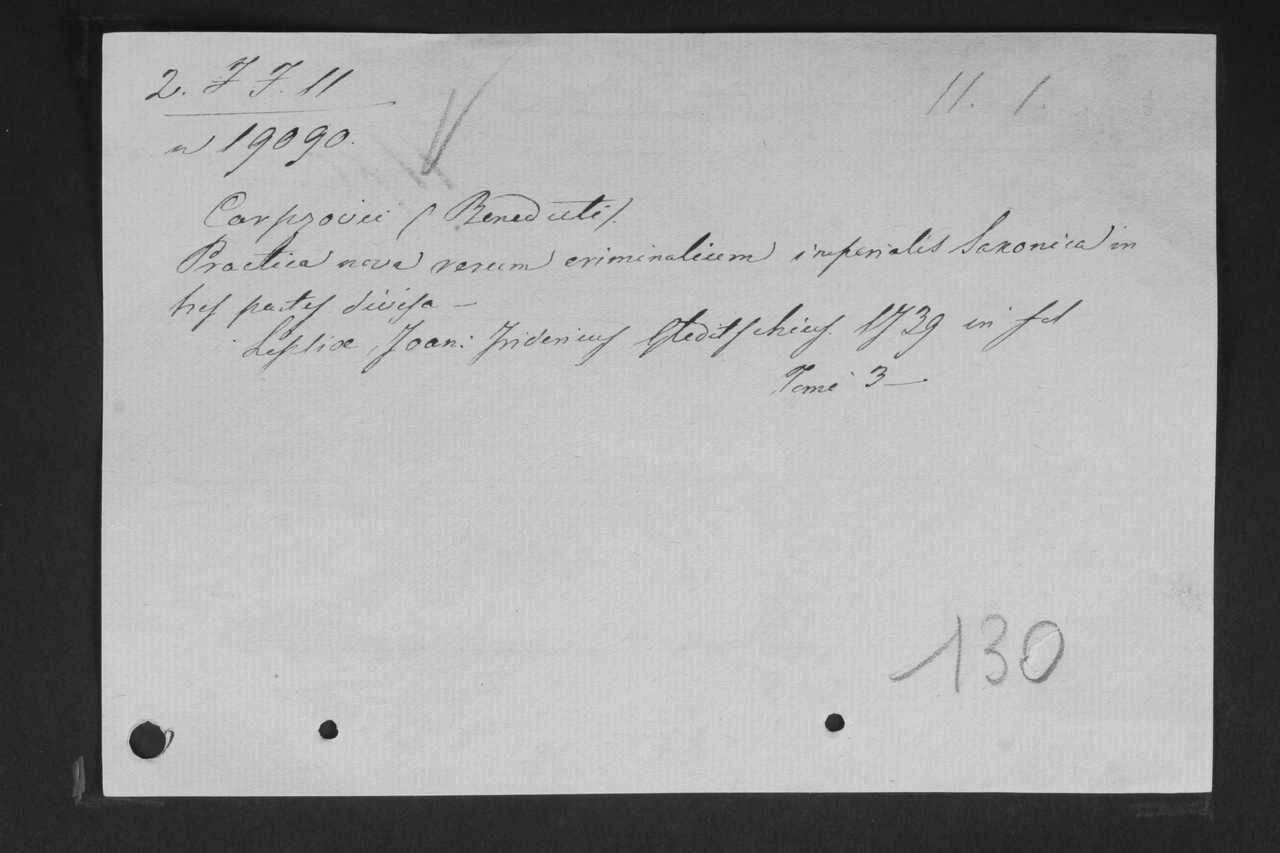 2. F F. 11
11. 1.
n 19090.
Carpzovii (Benedicti).
Practica nova rerum criminalium imperialis Saxonica in
tres partes divisa —
Lipsiæ, Joan: Fridericus Gleditschius. 1739 in fol
Tomi 3 —
130